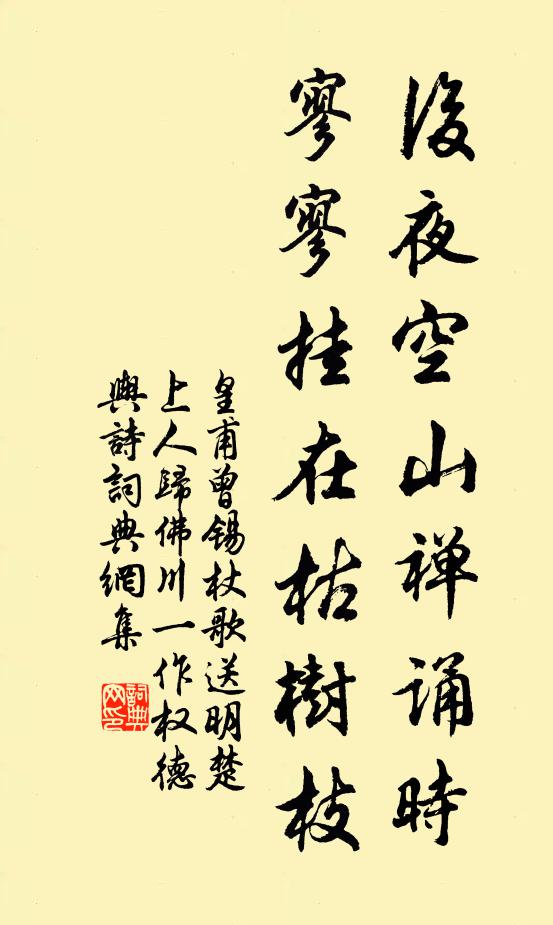 後夜空山禅诵時
寥寥挂在枯樹枝
皇甫曾锡杖歌送明楚
上人歸佛川一作权德
與詩詞典網集
詞典
网印